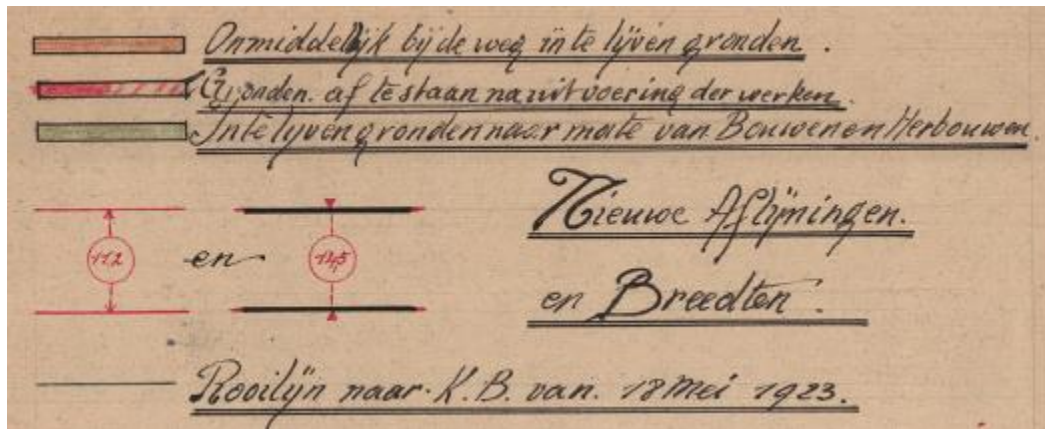 Onmiddelijk bij de weg in te lijven gronden.
Gronden af te staan na uitvoering der werken.
In te lijven gronden naar mate van Bouwen en Herbouwen.
Nieuwe Aflijningen.
11,2 en 12,5
en Breedten.
Rooilijn naar K.B. van 18 Mei 1923.